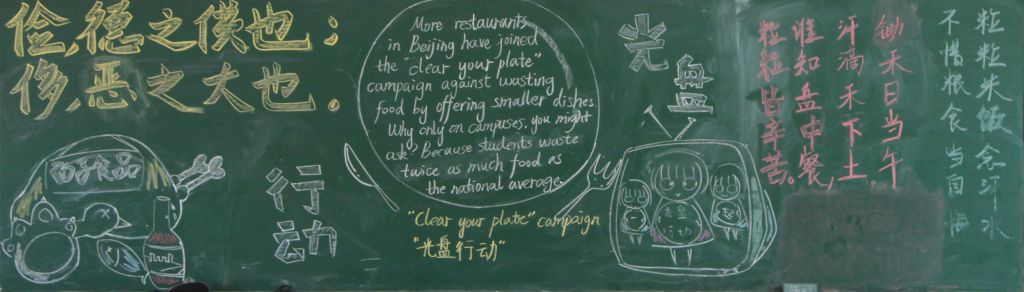 俭,德之僕也;
侈,恶之大也.
行
动
More restaurants
in Beijing have joined
the "clear your plate"
campaign against wasting
food by offering smaller dishes.
Why only on campuses, you might
ask? Because students waste
twice as much food as
the national average.
"Clear your plate" campaign
"光盘行动"
光
盘
光盘
行动
锄禾日当午
汗滴禾下土
谁知盘中餐,
粒粒皆辛苦。
粒粒米饭念汗水
不惜粮食当自悔